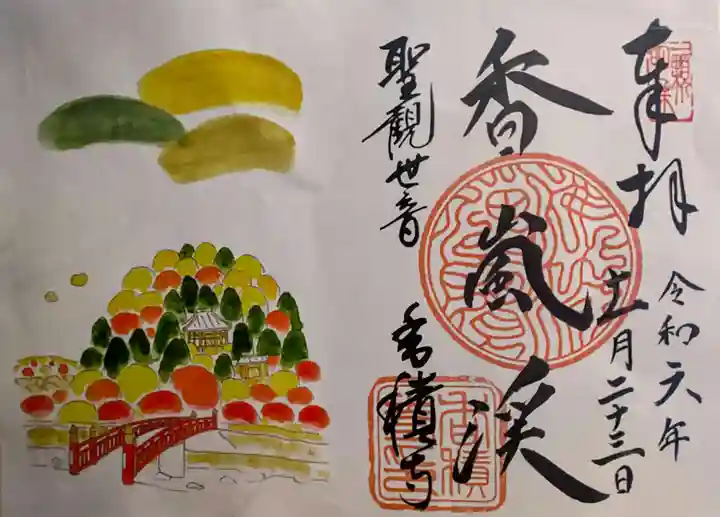 奉拝
令和元年
十一月二十三日
香嵐渓
聖觀世音
香積寺